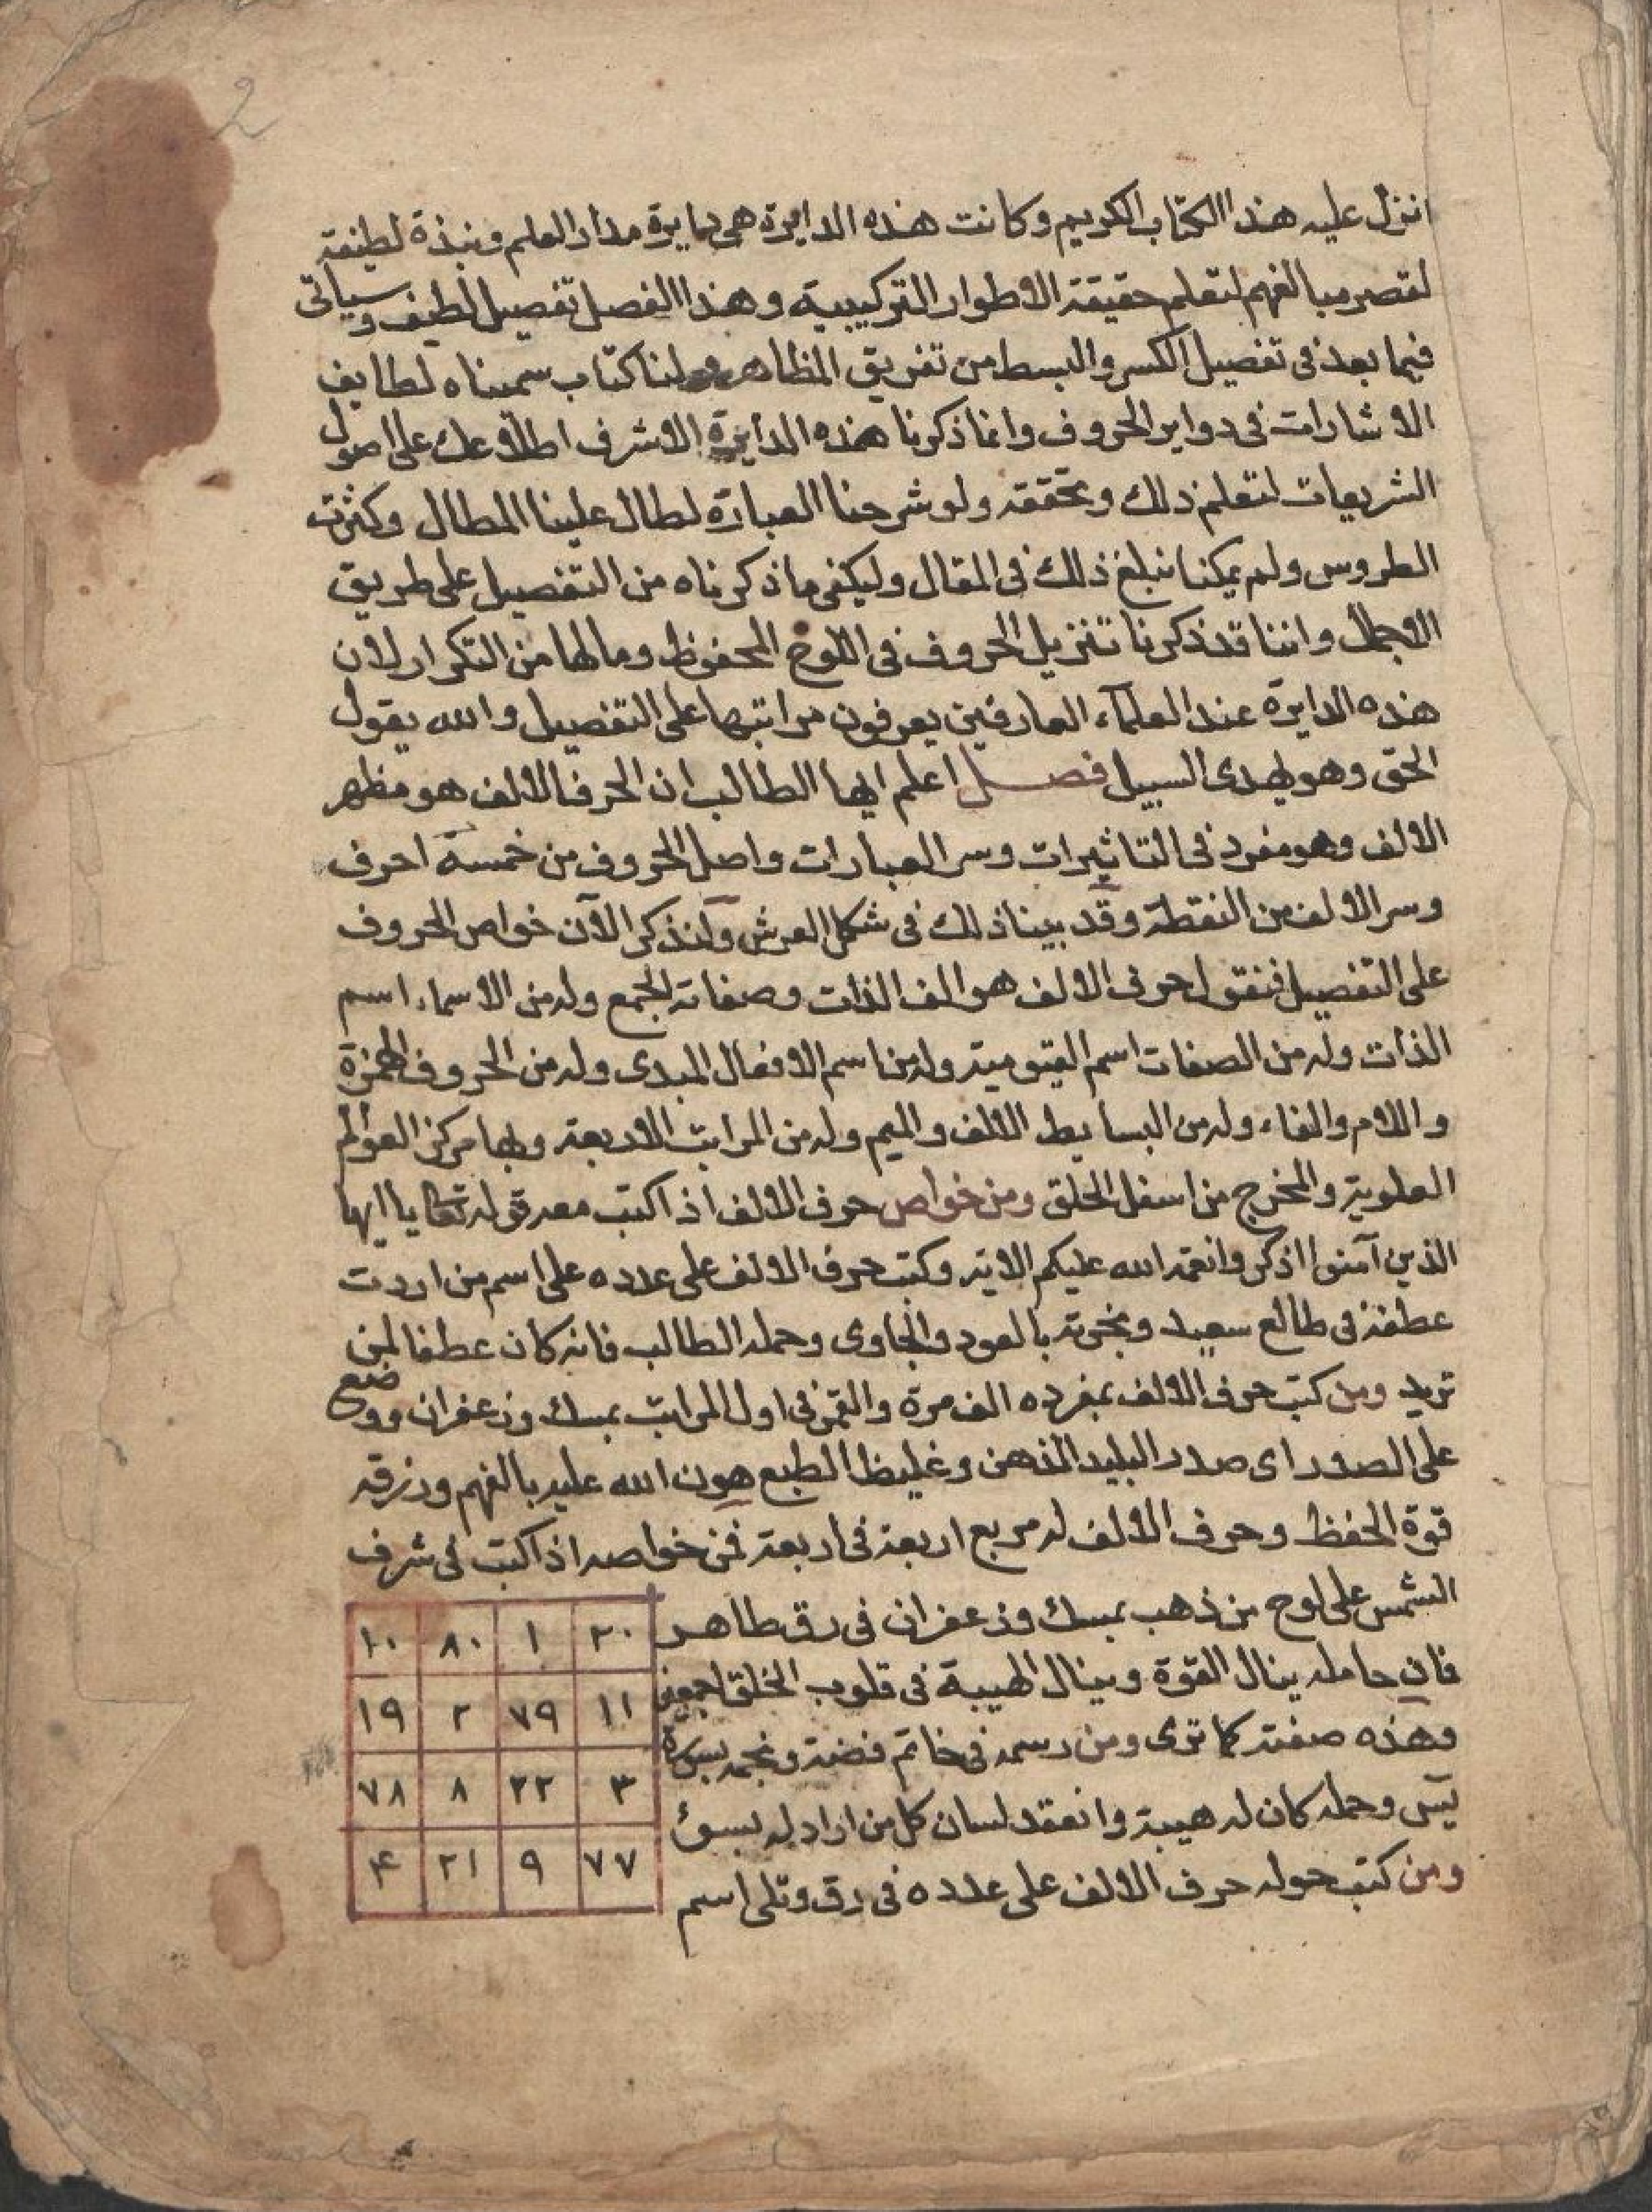 2
انزل عليه هذا الكتاب الكريم وكانت هذه الدايرة هى دايرة مدار العلم ونبذة لطيفة
لقصر مبالفهم لتعلم حقيقة الاطوار التركيبية وهذا الفصل تفصيل لطيف وسياتى
فيما بعد فى تفصيل الكسر والبسط من تفريق المظاهر ولنا كتاب سميناه لطايف
الاشارات فى دواير الحروف وانما ذكرنا هذه الدايرة الاشرف اطلاعك على اصول
الشريعات لتعلم ذلك وتحققه ولو شرحنا العبارة لطال علينا المطال وكثرت
الطروس ولم يمكنا نبلغ ذلك فى المقال وليكفى ما ذكرناه من التفصيل على طريق
الاجمال واننا قد ذكرنا تنزيل الحروف فى اللوح المحفوظ وما لها من التكرار لان
هذه الدايرة عند العلمآء العارفين يعرفون مراتبها على التفصيل والله يقول
الحق وهو يهدى السبيل فصل اعلم ايها الطالب ان الحرف الالف هو مظهر
الالف وهو مفرد فى التاثيرات وسر العبارات واصل الحروف من خمسة احرف
وسر الالف من النقطة وقد بينا ذلك فى شكل العرش ولنذكر الآن خواص الحروف
على التفصيل فنقول حرف الالف هو الف الذات وصفاته الجمع وله من الاسماء اسم
الذات وله من الصفات اسم القيومية وله من اسم الافعال المبدى وله من الحروف الهمزة
واللام والفاء وله من البسايط الالف والميم وله من المراتب الاربعة وبها مركز العوالم
العلوية والمخرج من اسفل الحلق ومن خواص حرف الالف اذا كتب معه قوله تعا يا ايها
الذين آمنوا اذكروا نعمة الله عليكم الاية وكتب حرف الالف على عدده على اسم من اردت
عطفه فى طالع سعيد وبخرته بالعود والجاوى وحمله الطالب فانه كان عطفا لمن
تريد ومن كتب حرف الالف بمفرده الف مرة والقمر فى اول المراتب بمسك وزعفران ووضع
على الصدر اى صدر البليد الذهن وغليظ الطبع هون الله عليه بالفهم ورزقه
قوة الحفظ وحرف الالف له مربع اربعة فى اربعة فمن خواصه اذا كتب فى شرف
الشمس على لوح من ذهب بمسك وزعفران فى رق طاهر
فان حامله ينال القوة وينال الهيبة فى قلوب الخلق اجمعين
وهذه صفته كما ترى ومن رسمه فى خاتم فضة ونجمه بسورة
يس وحمله كان له هيبة وانعقد لسان كل من اراد له بسوئ
ومن كتب حوله حرف الالف على عدده فى رق وتلى اسم
٢٠ ١ ٨٠ ١٠
١١ ٧٩ ٢ ١٩
٣ ٢٢ ٨ ٧٨
٧٧ ٩ ٢١ ۴